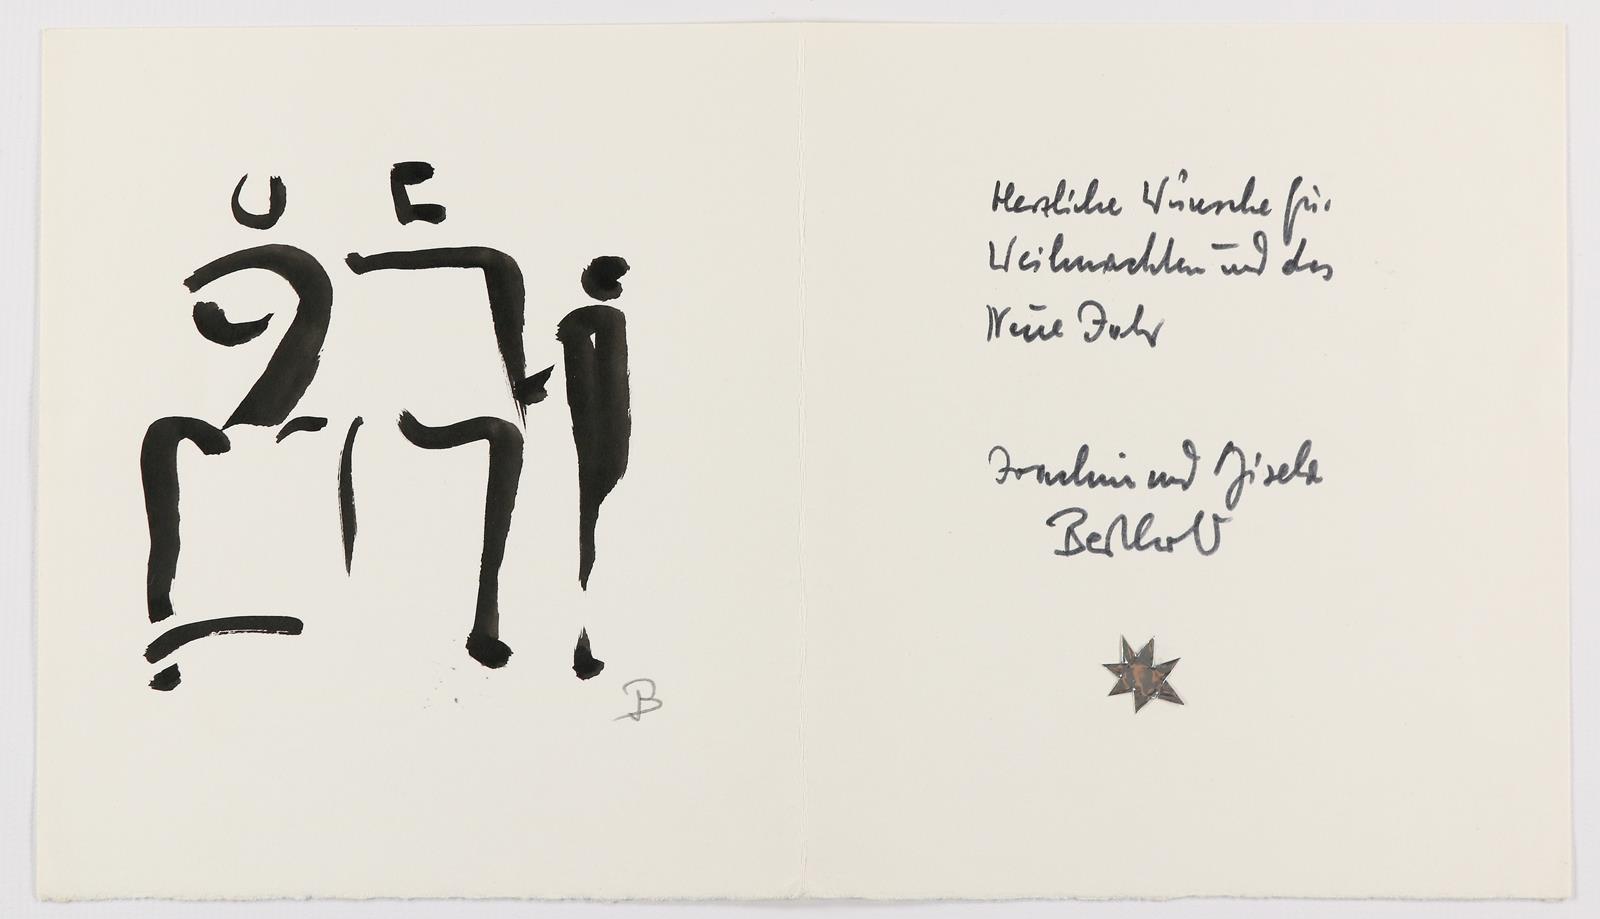 B
Herzliche Wünsche für
Weihnachten und das
Neue Jahr
Joachim und Gisela
Berthold